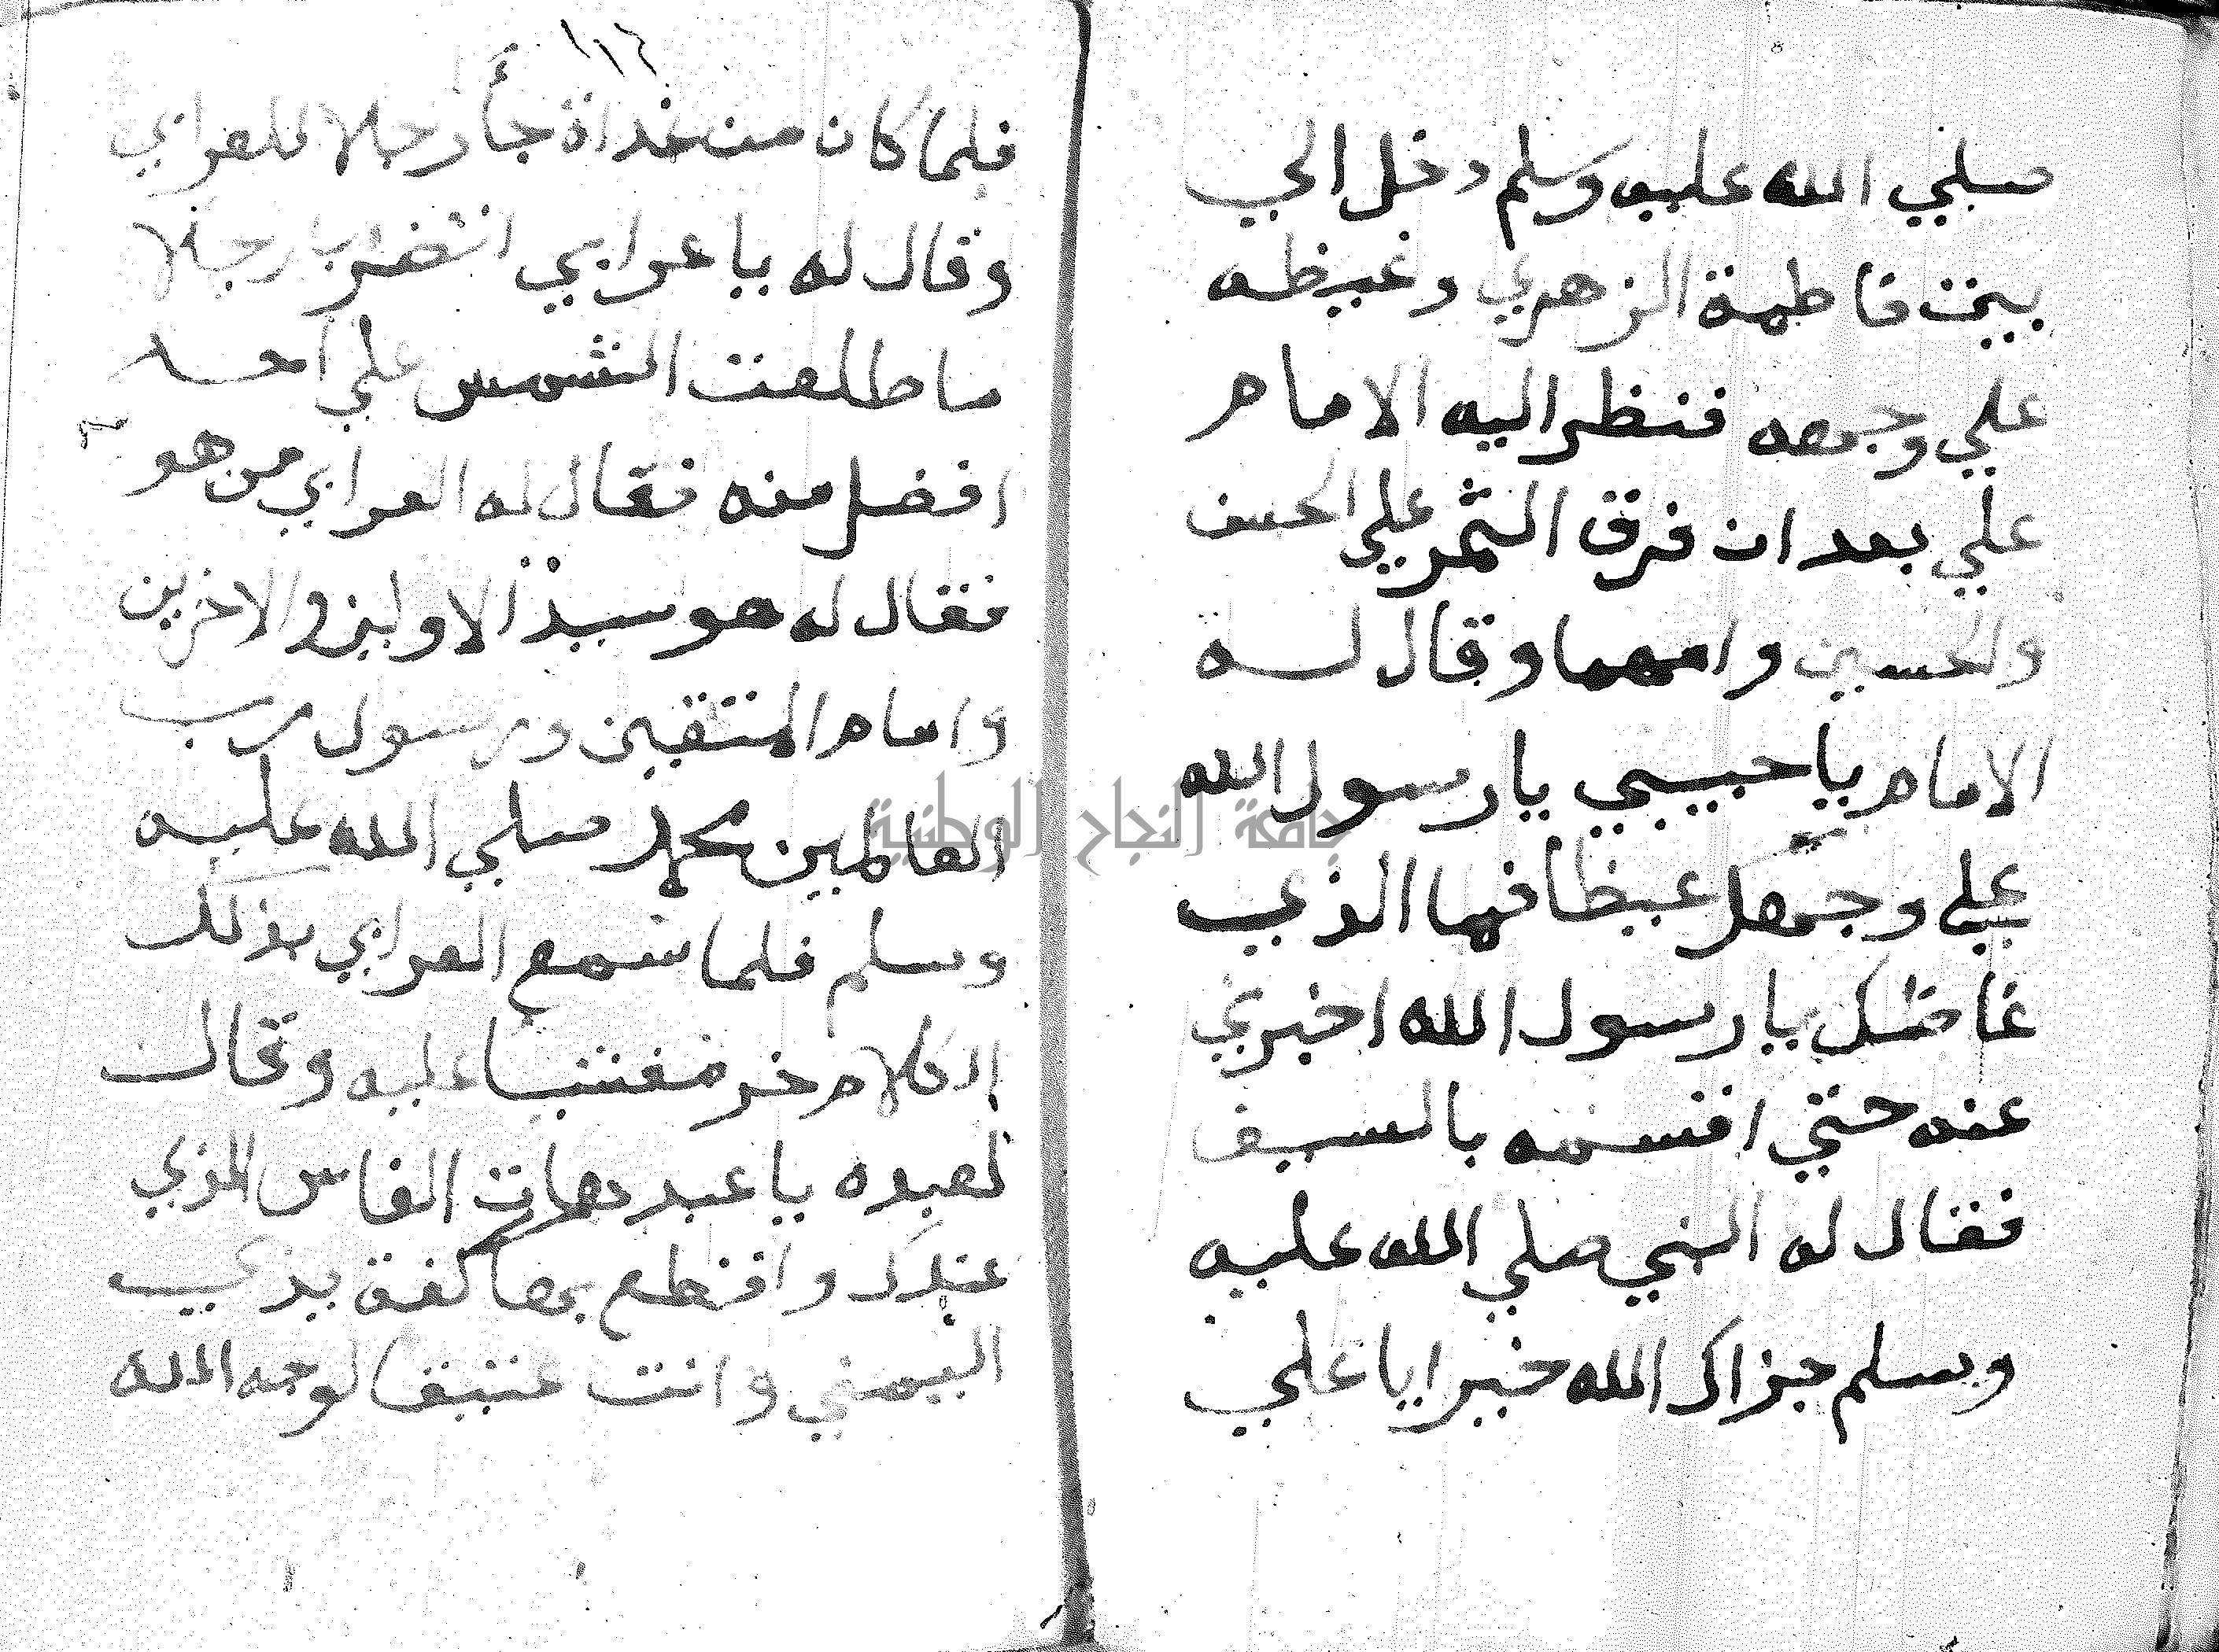 صلي الله عليه وسلم دخل الي
بيت فاطمة الزهري وغيظه
علي وجهه فنظر اليه الامام
علي بعد ان فرق التمر علي الحسن
والحسين وامهما وقال له
الامام يا حبيبي يا رسول الله
علي وجهك غيظا فما الذي
غاضك يا رسول الله اخبرني
عنه حتي اقسمه بالسيف
فقال له النبي صلي الله عليه
وسلم جزاك الله خيرا يا علي
١١٦
فلما كان من غداة جأ رجلا للعرابي
وقال له يا عرابي اتضرب رجلا
ما طلعت الشمس علي احد
افضل منه فقال له العرابي من هو
فقال له هو سيد الاولين والاخرين
وامام المتقين ورسول رب
العالمين محمد صلي الله عليه
وسلم فلما سمع العرابي بذلك
الكلام خر مغشيا عليه وقال
لعبده يا عبد هات الفاس الذي
عندك واقطع بها كفة يدي
اليمني وانت عتيقا لوجه الله
جامعة النجاح الوطنية